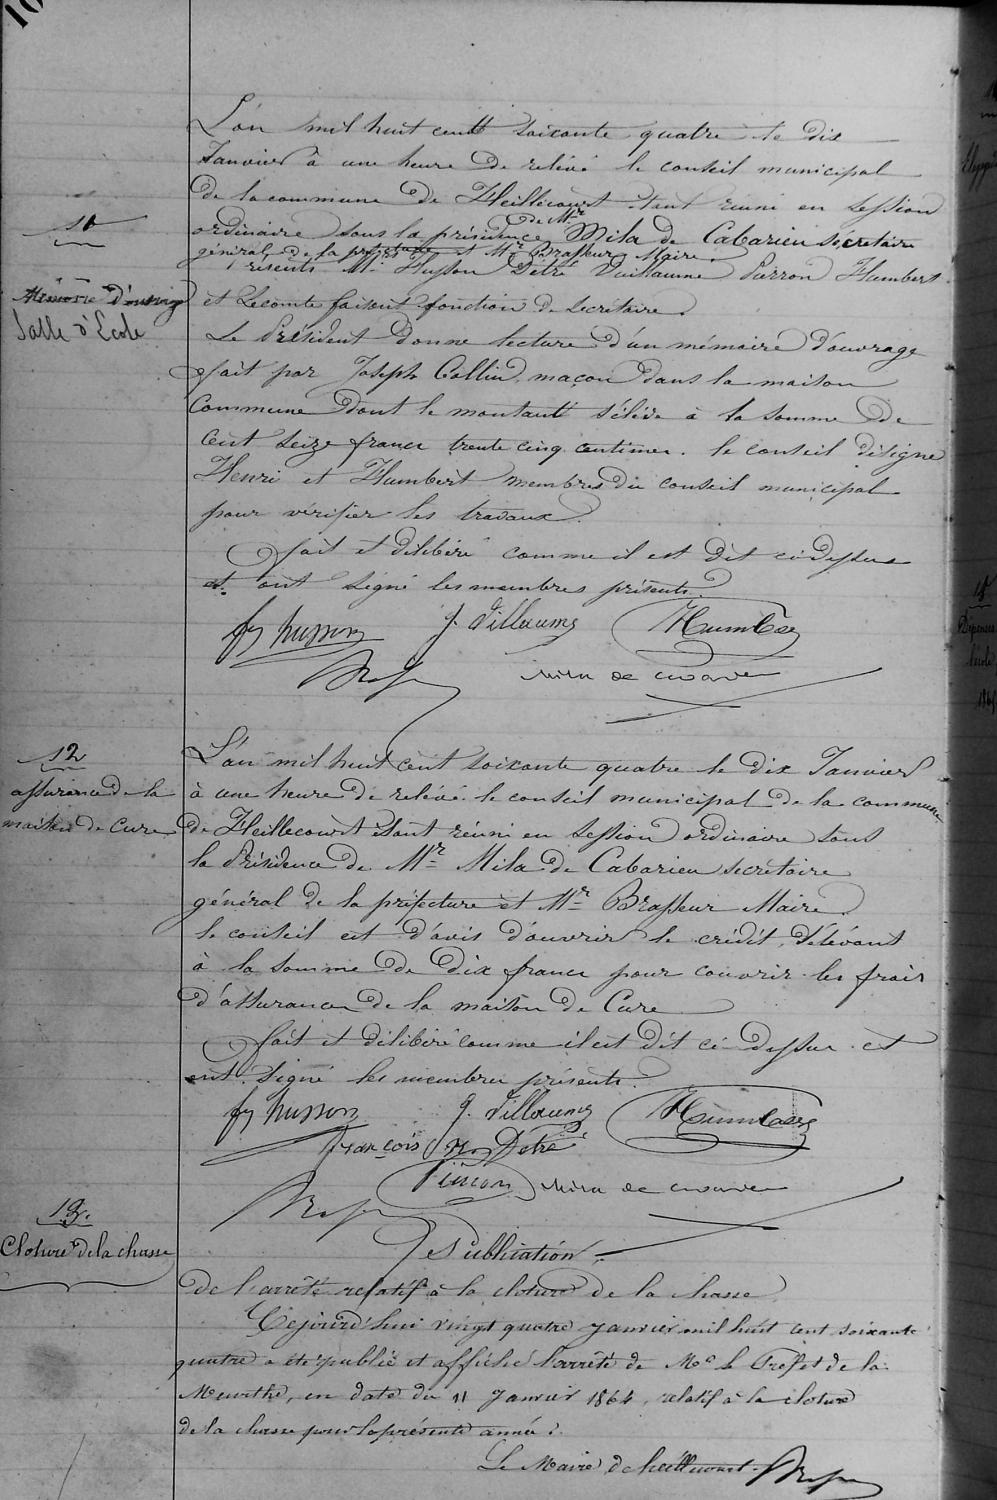 10
L'an mil huit cent soixante quatre le dix
Janvier à une heure de relévé le conseil municipal
de la commune de Heillecourt étant réuni en Session
11
ordinaire sous la présidence de Mr Mila de Cabarieu Sécretaire
général de la préfecture et Mr Brasseur Maire.
présents M. Husson Détré Vuillaume Pierron Humbert
Mémoire d'ouvrage
Salle d'Ecole
et Lecomte faisant fonction de Secretaire.
Le Président donne lecture d'un mémoire d'ouvrage
fait par Joseph Collin, maçon dans la maison
Commune dont le montant s'élève à la somme de
Cent seize francs trente cinq centimes. le conseil désigne
Henri et Humbert membres du conseil municipal
pour vérifier les travaux.
fait et délibéré comme il est dit ci-dessus
et ont signé les membres présents.
fs husson J. Villaume Humbert
Mila de Cabarieu
12
assurance de la
maison de Cure
L'an mil huit cent soixante quatre le dix Janvier
à une heure de relévé le conseil municipal de la commune
de Heillecourt étant réuni en session ordinaire sous
la Présidence de Mr Mila de Cabarieu secrétaire
général de la préfecture et Mr Brasseur Maire.
le conseil est d'avis d'ouvrir le crédit s'élévant
à la somme de dix francs pour couvrir les frais
d'assurances de la maison de Cure
fait et délibéré comme il est dit ci-dessus et
ont signé les membres présents.
fs husson J. Villaume Humbert
François Détré
Pierron Mila de Cabarieu
13.
Cloture de la chasse
Publication
de l'arrêté relatif à la cloture de la chasse
Cejourd'hui vingt quatre janvier mil huit cent soixante
quatre a été publié et affiché l'arrêté de Mr le Préfet de la
Meurthe, en date du 11 Janvier 1864, relatif à la cloture
de la chasse pour la présente année.
Le Maire de heillecourt